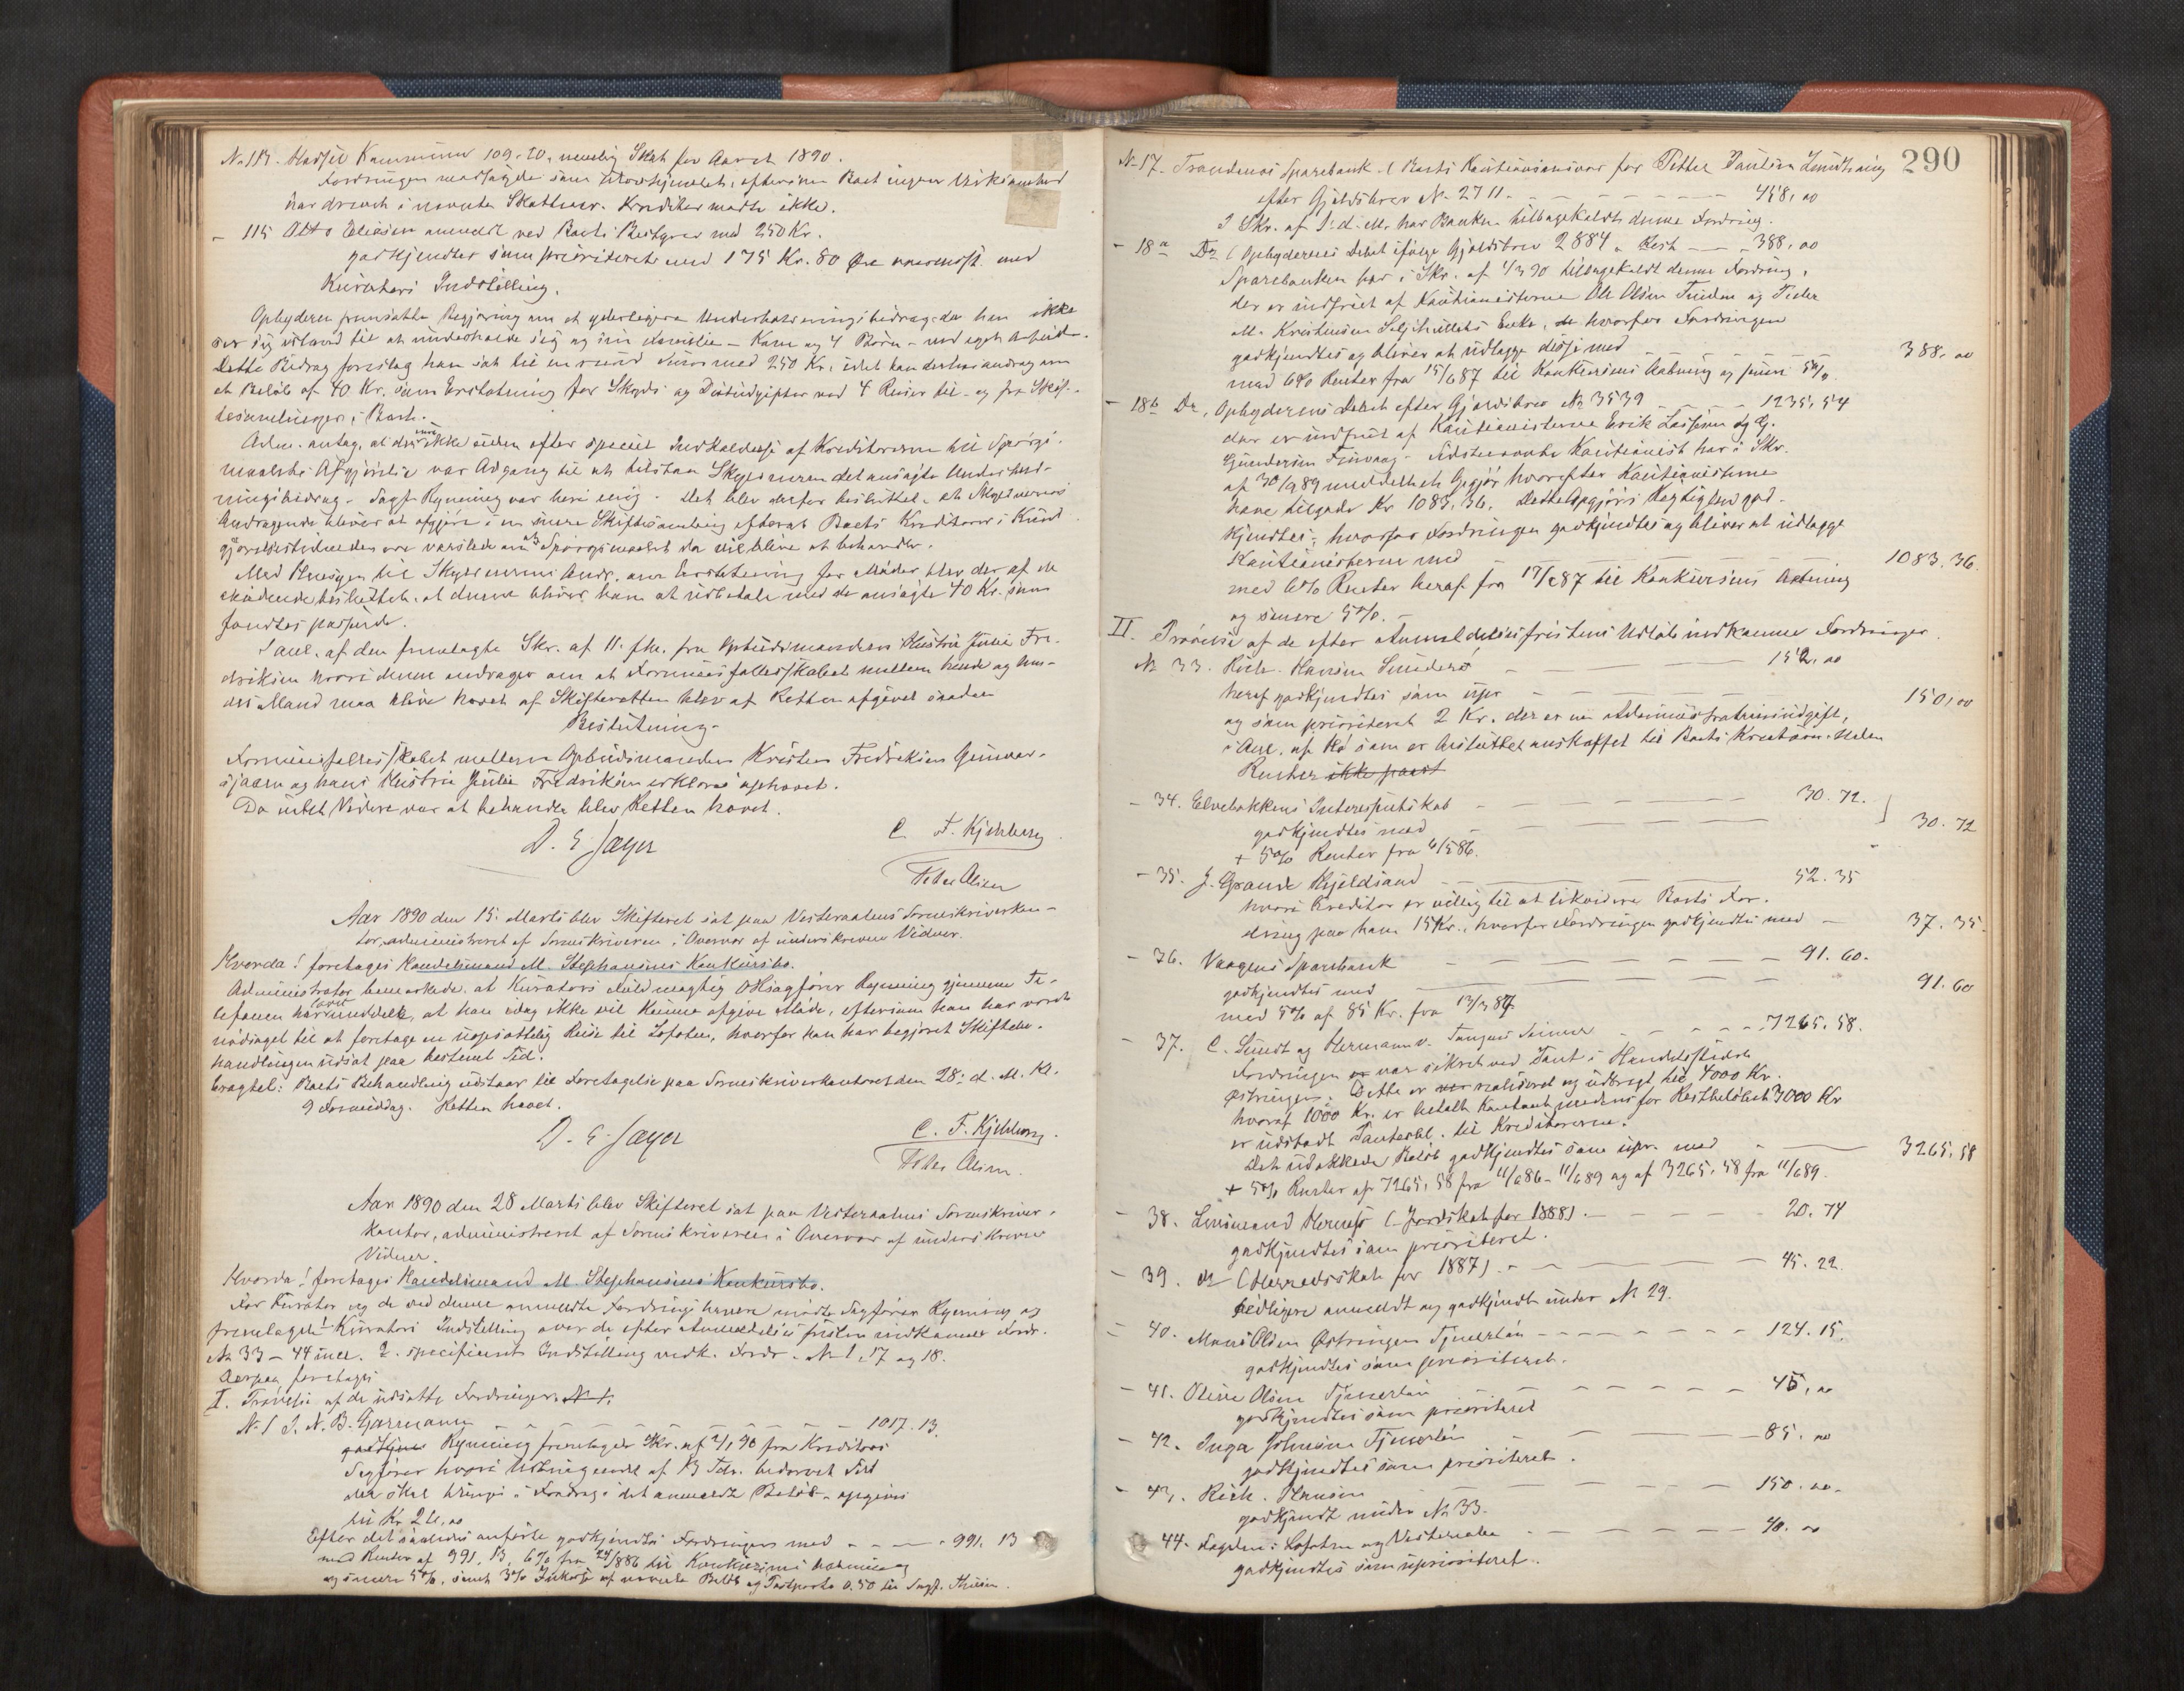 No 113. Hadsel Kommune 109.20, nemlig Skat for Aaret 1890.
Fordringen modsagdes som uvedkjommende, eftersom Boet ingen Virksomhed
har drevet i nævnte Skatteaar. Kreditor mødte ikke.
- 115 Otto Eliasen anmeldt ved Boets Bestyrer med 250 Kr.
godkjendtes som prioriteret med 175 Kr. 80 Øre overensst. med
Kurators Indstilling.
Opbyderen fremsatte Begjæring om et yderligere Underholdningsbidrag, da han ikke
ser sig istand til at underholde sig og sin Familie - Kone og 4 Børn - ved eget Arbeide.
Dette Bidrag foreslog han sat til en rund Sum med 250 Kr., idet han derhos androg om
et Beløb af 40 Kr. som Erstatning for Skyds og Diætudgifter ved 4 Reiser til og fra Skif-
tesamlinger i Boet.
Adm. antog, at der ikke uden efter speciel Indkaldelse af Kreditorerne til Spørgs-
maalets Afgjørelse var Adgang til at tilstaa Skyldneren det ansøgte Underhold-
ningsbidrag. Sagf. Rynning var heri enig. Det blev derfor besluttet, at Skyldnerens
Andragende bliver at afgjøre i en senere Skiftesamling efterat Boets Kreditorer i Kund-
gjørelsestidende er varslede om at Spørgsmaalet da vil blive at behandle.
Med Hensyn til Skyldnerens Andr. om Erstatning for Møder blev der af de
mødende besluttet, at denne bliver ham at udbetale med de ansøgte 40 Kr. som
fandtes passende.
I Anl. af den fremlagte Skr. af 11. f.M. fra Opbudsmandens Hustru Julie Fre-
driksen hvori denne andrager om at Formuesfællesskabet mellem hende og hen-
des Mand maa blive hævet af Skifteretten blev af Retten afgivet saadan
Beslutning.
Formuesfællesskabet mellem Opbudsmanden Kristen Fredriksen Gunnar-
sjaaen og hans Hustru Julie Fredriksen erklæres ophævet.
Da intet Videre var at behandle blev Retten hævet.
D. E. Jæger C. F. Kjelsberg
Peter Olsen
Aar 1890 den 15. Marts blev Skifteret sat paa Vesteraalens Sorenskriverkon-
tor, administreret af Sorenskriveren, i Overvær af underskrevne Vidner.
Hvorda! foretoges Handelsmand M. Stephansens Konkursbo.
Administrator bemærkede, at Kurators Fuldmægtig ORsagfører Rynning gjennem Te-
lefonen har meddelt, at han idag ikke vil kunne afgive Møde, eftersom han har været
nødsaget til at foretage en uopsættelig Reise til Lofoten, hvorfor han har begjæret Skiftebe-
handlingen udsat paa bestemt Tid.
Eragtet: Boets Behandling udstaar til Foretagelse paa Sorenskriverkontoret den 28. d. M. Kl.
9 Formiddag. Retten hævet.
D. E. Jæger C. F. Kjelsberg.
Peter Olsen.
Aar 1890 den 28 Marts blev Skifteret sat paa Vesteraalens Sorenskriver-
kontor, administreret af Sorenskriveren i Overvær af underskrevne
Vidner.
Hvorda! foretoges Handelsmand M. Stephansens Konkursbo.
For Kurator og de ved denne anmeldte Fordringshavere mødte Sagfører Rynning og
fremlagde Kurators Indstilling over de efter Anmeldelsesfristen indkomne Fordr.
No 33 - 44 incl. 2. specificeret Indstilling vedk. Fordr. No 1, 17 og 18.
Derpaa foretoges
I. Prøvelse af de udsatte Fordringer. No 1.
No 1 J. N. B. Garmann 1017.13.
Rynning fremlagde Skr. af 2/1 90 fra Kreditors
Sagfører hvori af 13 Tdr. Sild
der skal bringes i Fradrag i det anmeldte Beløb, opgives
til Kr 26,00
Efter det saaledes anførte godkjendtes Fordringen med 991.13
med Renter af 991.13, 6% fra 24/8 86 til Konkursens Aabning
og senere 5%, samt 3% Inkasso af nævnte Beløb og Postporto 0.50 til Sagf. Thiis.
290
No 17. Trondenes Sparebank (Boets Kautionsansvar for Petter Paulsen
efter Gjældsbrev No 2711. 458,00
I Skr. af 1. d. M. har Banken tilbagekaldt denne Fordring.
- 18a Do (Opbyderens Debet ifølge Gjældsbrev 2884, Rest 388,00
Sparebanken har i Skr. af 1/3 90 tilbagekaldt denne Fordring,
der er indfriet af Kautionisterne Ole Olsen og Peder
M. Kristensen Enke, hvorfor Fordringen
godkjendtes og bliver at udlægge disse med 388,00
med 6% Renter fra 15/6 87 til Konkursens Aabning og senere 5%.
- 18b Do, Opbyderens Debet efter Gjældsbrev No 3539 1235,54
der er indfriet af Kautionisterne Erik Lassesen og G.
Gundersen Finvaag. Sidstnævnte Kautionist har i Skr.
af 30/9 89 meddelt et Opgjør hvorefter Kautionisterne
have tilgode Kr 1083,36. Dette Opgjørs Rigtighed god-
kjendtes, hvorfor Fordringen godkjendtes og bliver at udlægge
Kautionisterne med 1083.36.
med 6% Renter heraf fra 17/6 87 til Konkursens Aabning
og senere 5%.
II. Prøvelse af de efter Anmeldelsesfristens Udløb indkomne Fordringer.
No 33. Rich. Hansen 152,00
heraf godkjendtes som upr. 150,00
og som prioriteret 2 Kr. der er en Administrationsudgift,
i Anl. af Hø som er besluttet anskaffet til Boets Kreaturer. Uden
Renter ikke paast
- 34. Elvebakkens Interessentskab 30.72.
godkjendtes med 30.72
+ 5% Renter fra 6/5 86.
- 35. J. Grande Kjeldsand 52.35
hvori Kreditor er villig til at likvidere Boets For-
dring paa ham 15 Kr., hvorfor Fordringen godkjendtes med 37.35.
- 36. Vaagens Sparebank 91.60.
godkjendtes med 91.60
med 5% af 85 Kr. fra 13/3 87
- 37. C. Sundt og Hermann v. Tangens Sønner 7265.58.
Fordringen var sikret ved Pant i Handelsstedet
Østringen. Dette er realiseret og udbragt til 4000 Kr.
hvoraf 1000 Kr. er betalt kontant medens for Restbeløbet 3000 Kr
er udstedt Panteobl. til Kreditorerne.
Det udækkede Beløb godkjendtes som upr. med 3265,58
+ 5% Renter af 7265,58 fra 11/6 86 - 11/6 89 og af 3265,58 fra 11/6 89.
- 38. Lensmand (Jordskat for 1888) 20.74
godkjendtes som prioriteret.
- 39. do (Herredsskat for 1887) 45.22.
tidligere anmeldt og godkjendt under No 29.
- 40. Mons Olsen Østringen Tjenerløn 124.15.
godkjendtes som prioriteret.
- 41. Oline Olsen Tjenerløn 45,00
godkjendtes som prioriteret
- 42. Inga Johnsen Tjenerløn 85.00
godkjendtes som prioriteret.
- 43. Rich. Hansen 150.00.
godkjendt under No 33.
- 44. Fogden i Lofoten og Vesteraalen 40.00
godkjendtes som uprioriteret.